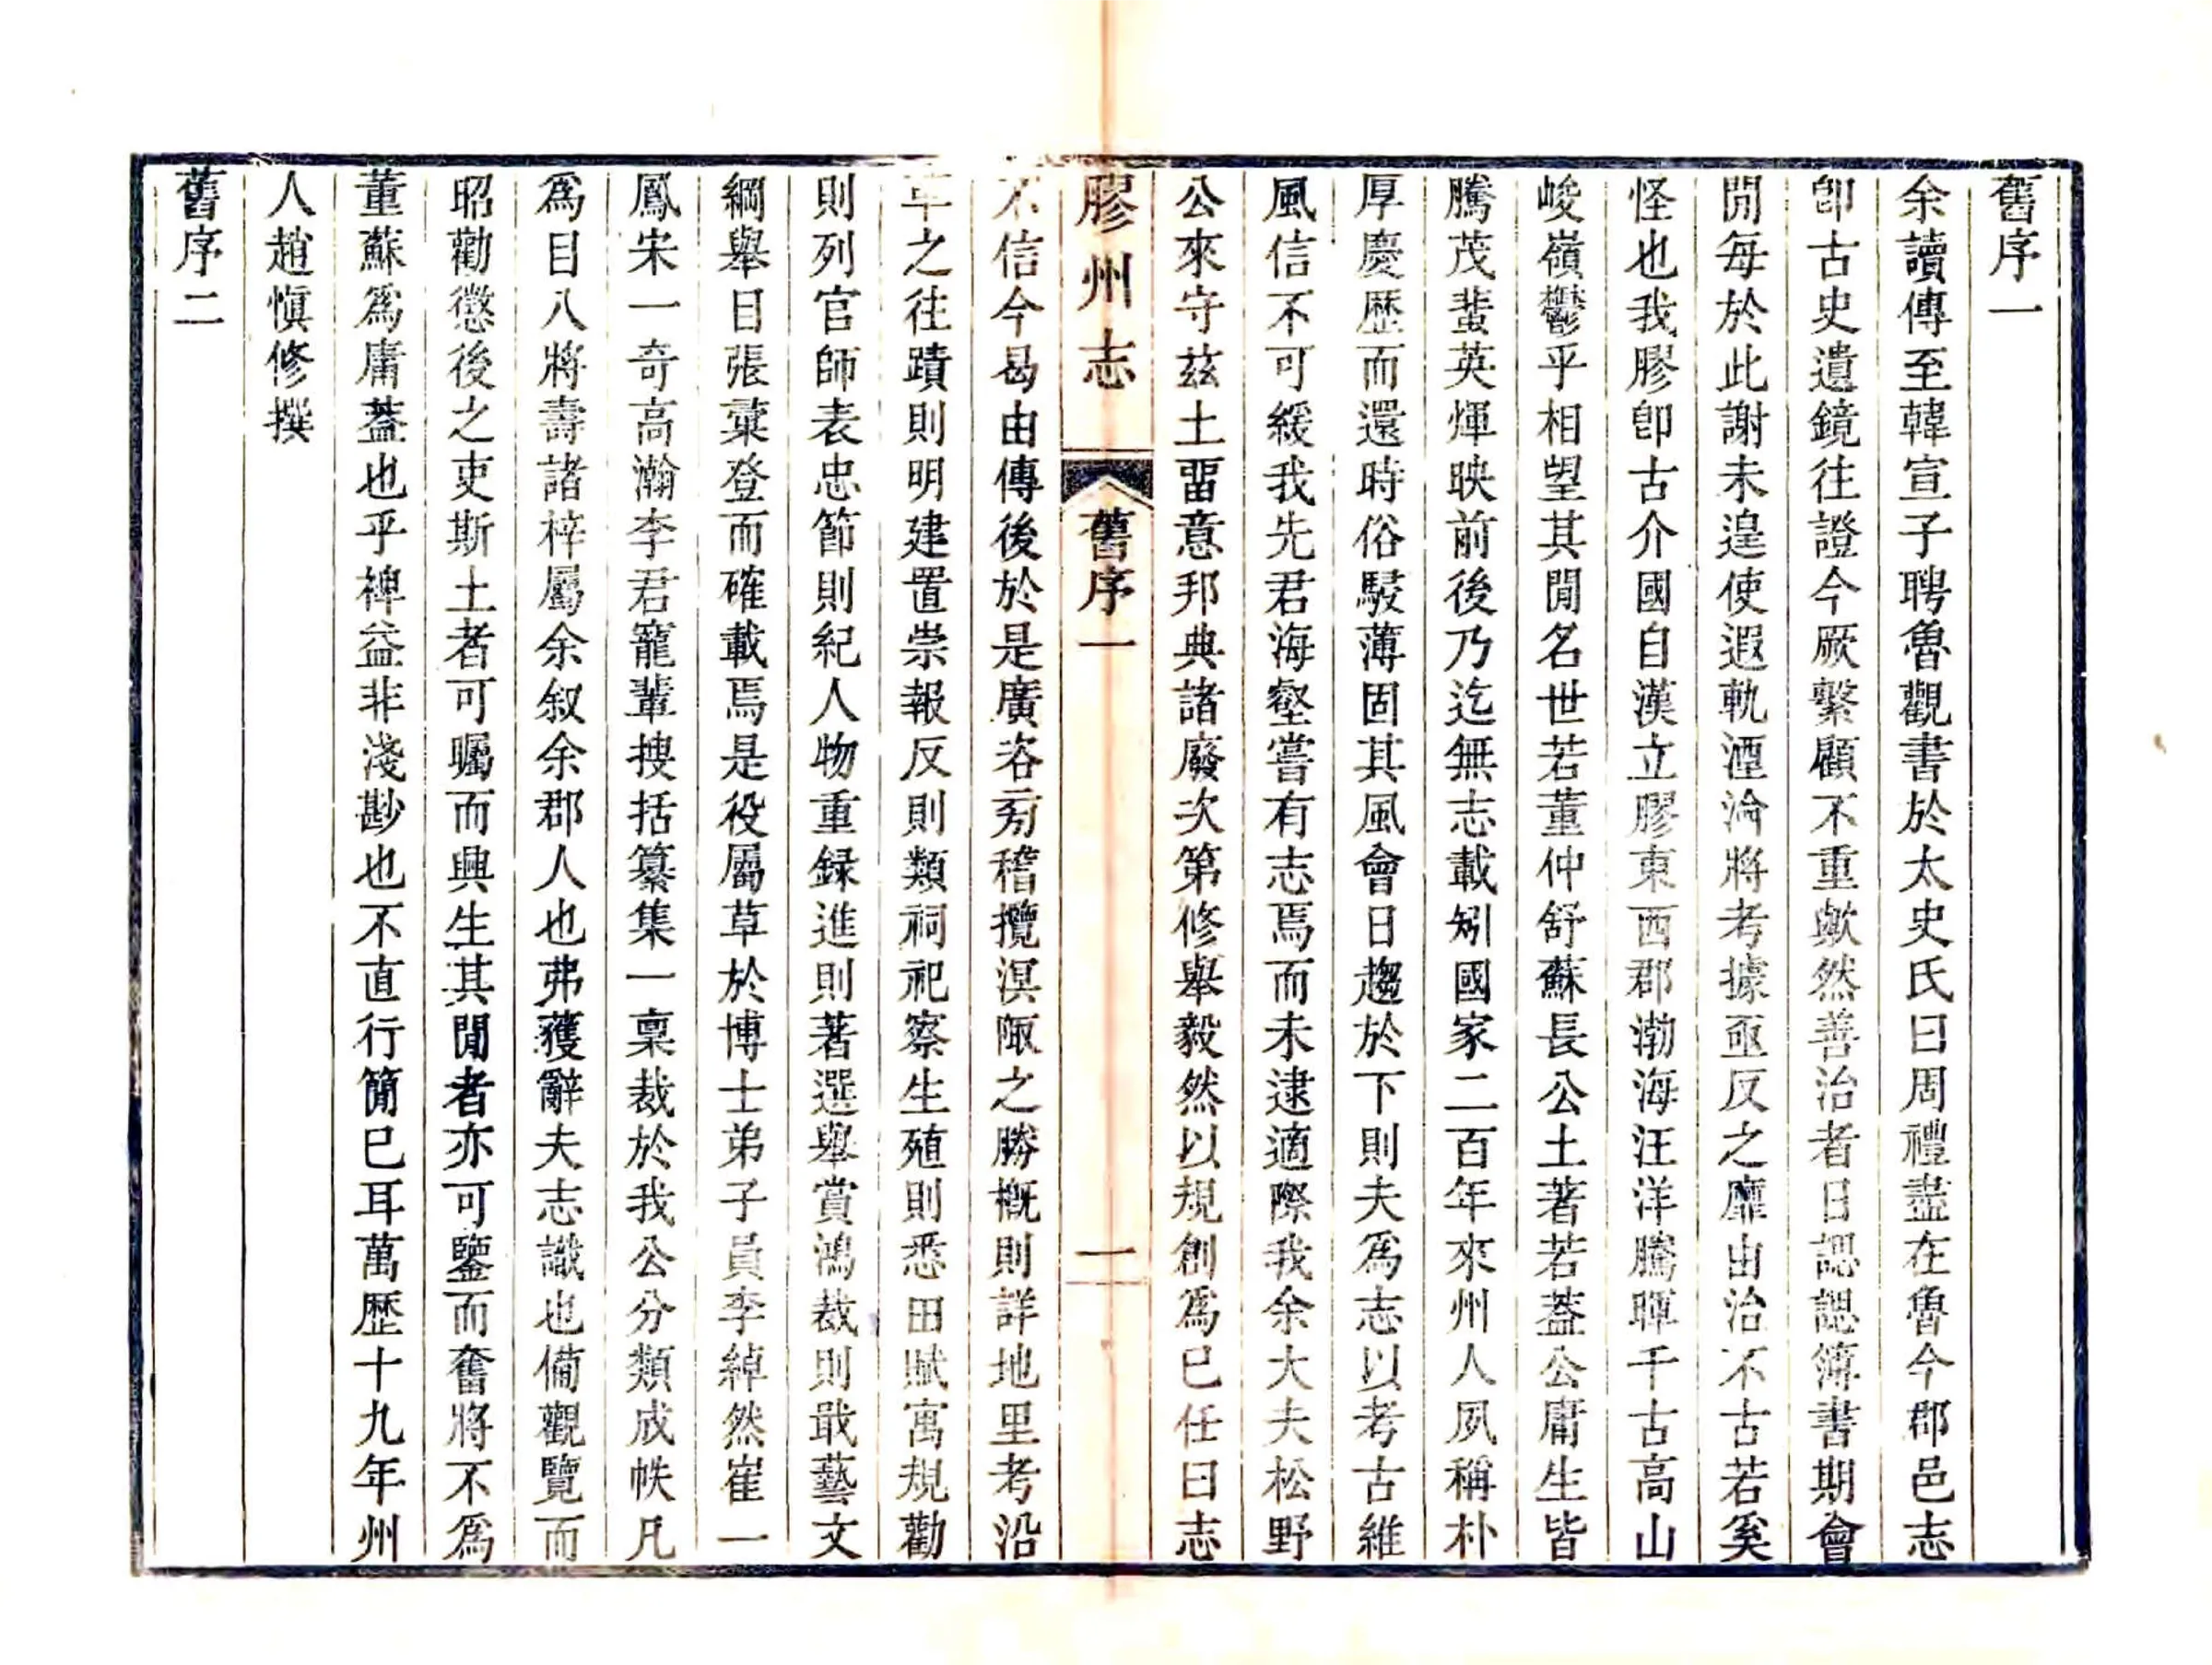 舊序一
余讀傳至韓宣子聘魯觀書於太史氏曰周禮盡在魯今郡邑志
卽古史遺鏡往證今厥繫顧不重歟然善治者日諰諰簿書期會
閒每於此謝未遑使遐軌湮淪將考據亟反之靡由治不古若奚
怪也我膠卽古介國自漢立膠東西郡渤海汪洋騰暉千古高山
峻嶺鬱乎相望其閒名世若董仲舒蘇長公土著若葢公庸生皆
騰茂蜚英煇映前後乃迄無志載矧國家二百年來州人夙稱朴
厚慶歷而還時俗駸薄固其風會日趨於下則夫爲志以考古維
風信不可緩我先君海壑嘗有志焉而未逮適際我余大夫松野
公來守茲土畱意邦典諸廢次第修舉毅然以規創爲已任曰志
膠州志 舊序一 一
不信今曷由傳後於是廣咨旁稽攬溟陬之勝概則詳地里考沿
革之往蹟則明建置崇報反則類祠祀察生殖則悉田賦寓規勸
則列官師表忠節則紀人物重録進則著選舉賞鴻裁則戢藝文
綱舉目張彙登而確載焉是役屬草於博士弟子員李綽然崔一
鳳宋一奇高瀚李君寵輩搜括纂集一稟裁於我公分類成帙凡
爲目八將壽諸梓屬余叙余郡人也弗獲辭夫志識也備觀覽而
昭勸懲後之吏斯土者可矚而興生其閒者亦可鑒而奮將不爲
董蘇爲庸葢也乎裨益非淺尠也不直行簡巳耳萬歷十九年州
人趙愼修撰
舊序二